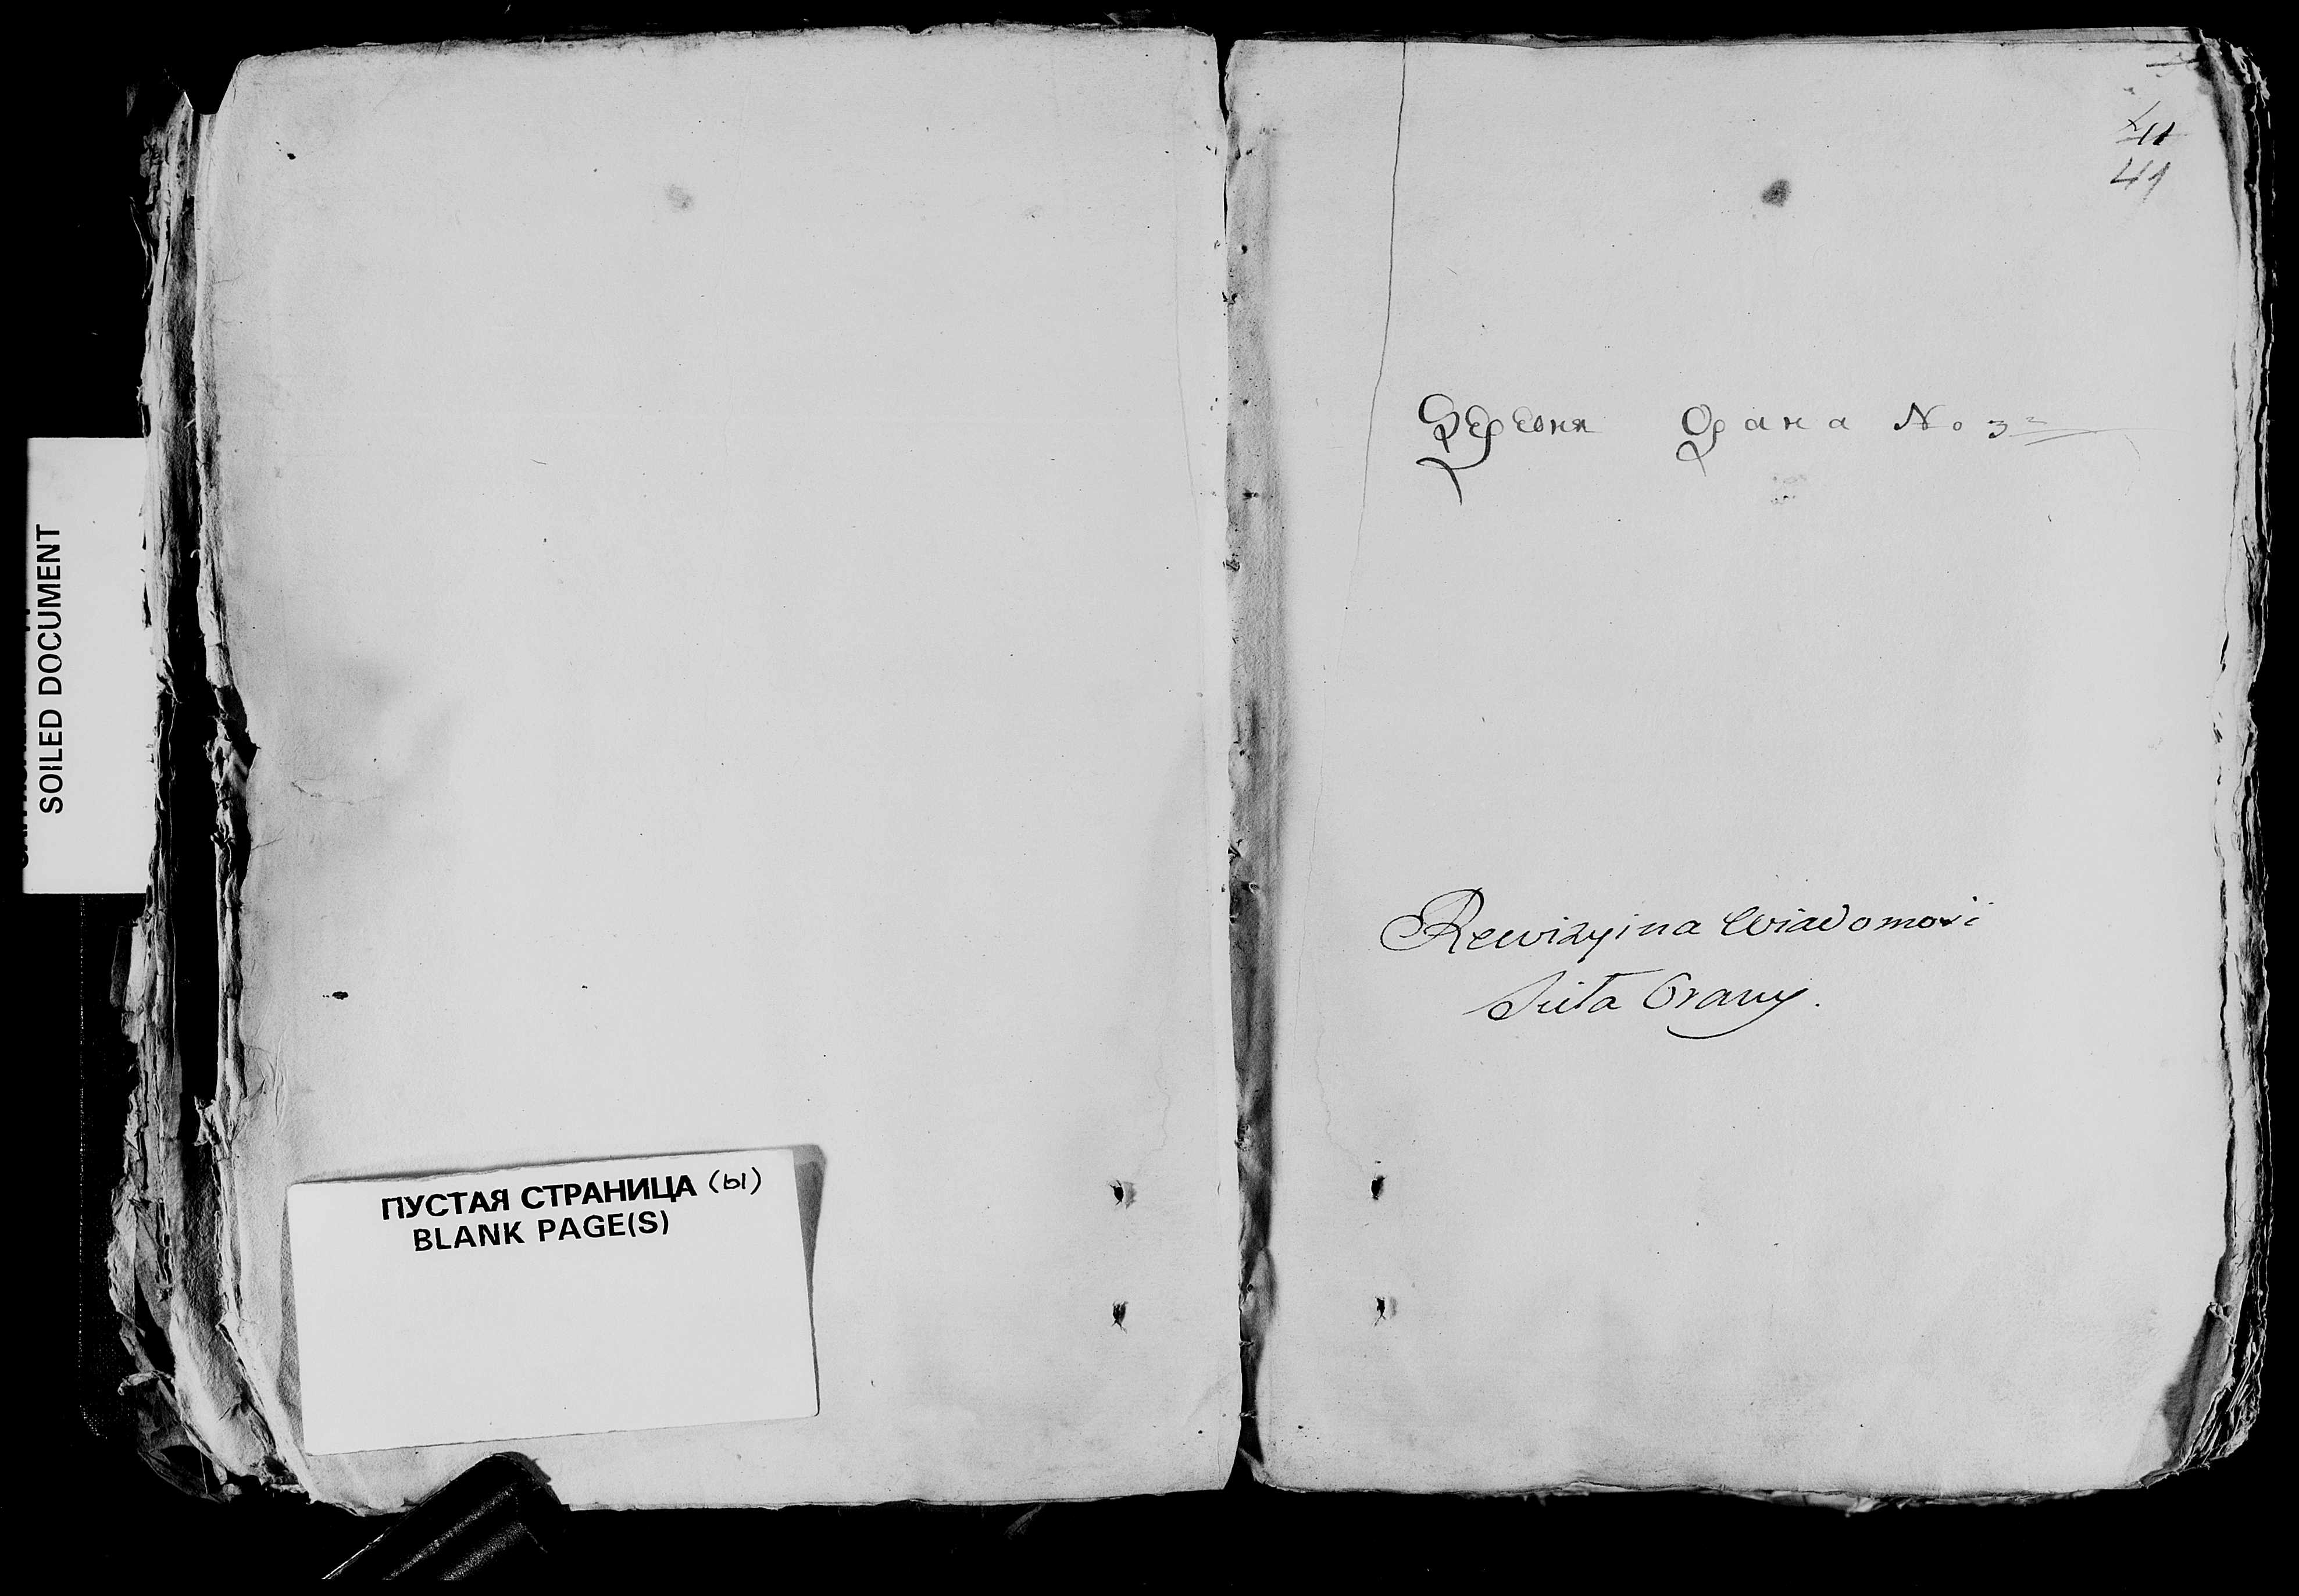 SOILED DOCUMENT
ПУСТАЯ СТРАНИЦА (ы)
BLANK PAGE(S)
41
41
Деревня Орана No 3
Rewizyina Wiadomość
Sieła Orany.